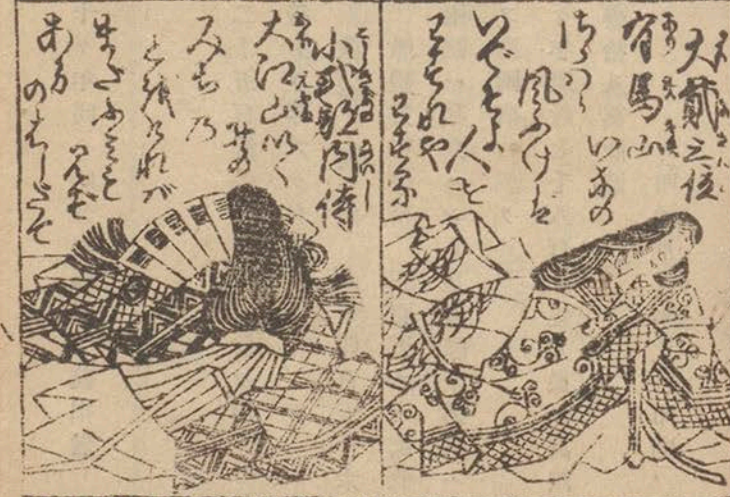 大貳三位
有馬山
いなの
さゝハら
風ふけば
いでそよ人を
わすれや
はする
小式部内侍
大江山いく
野の
みちの
とほければ
まだふミも
見ず
あまのはしだて